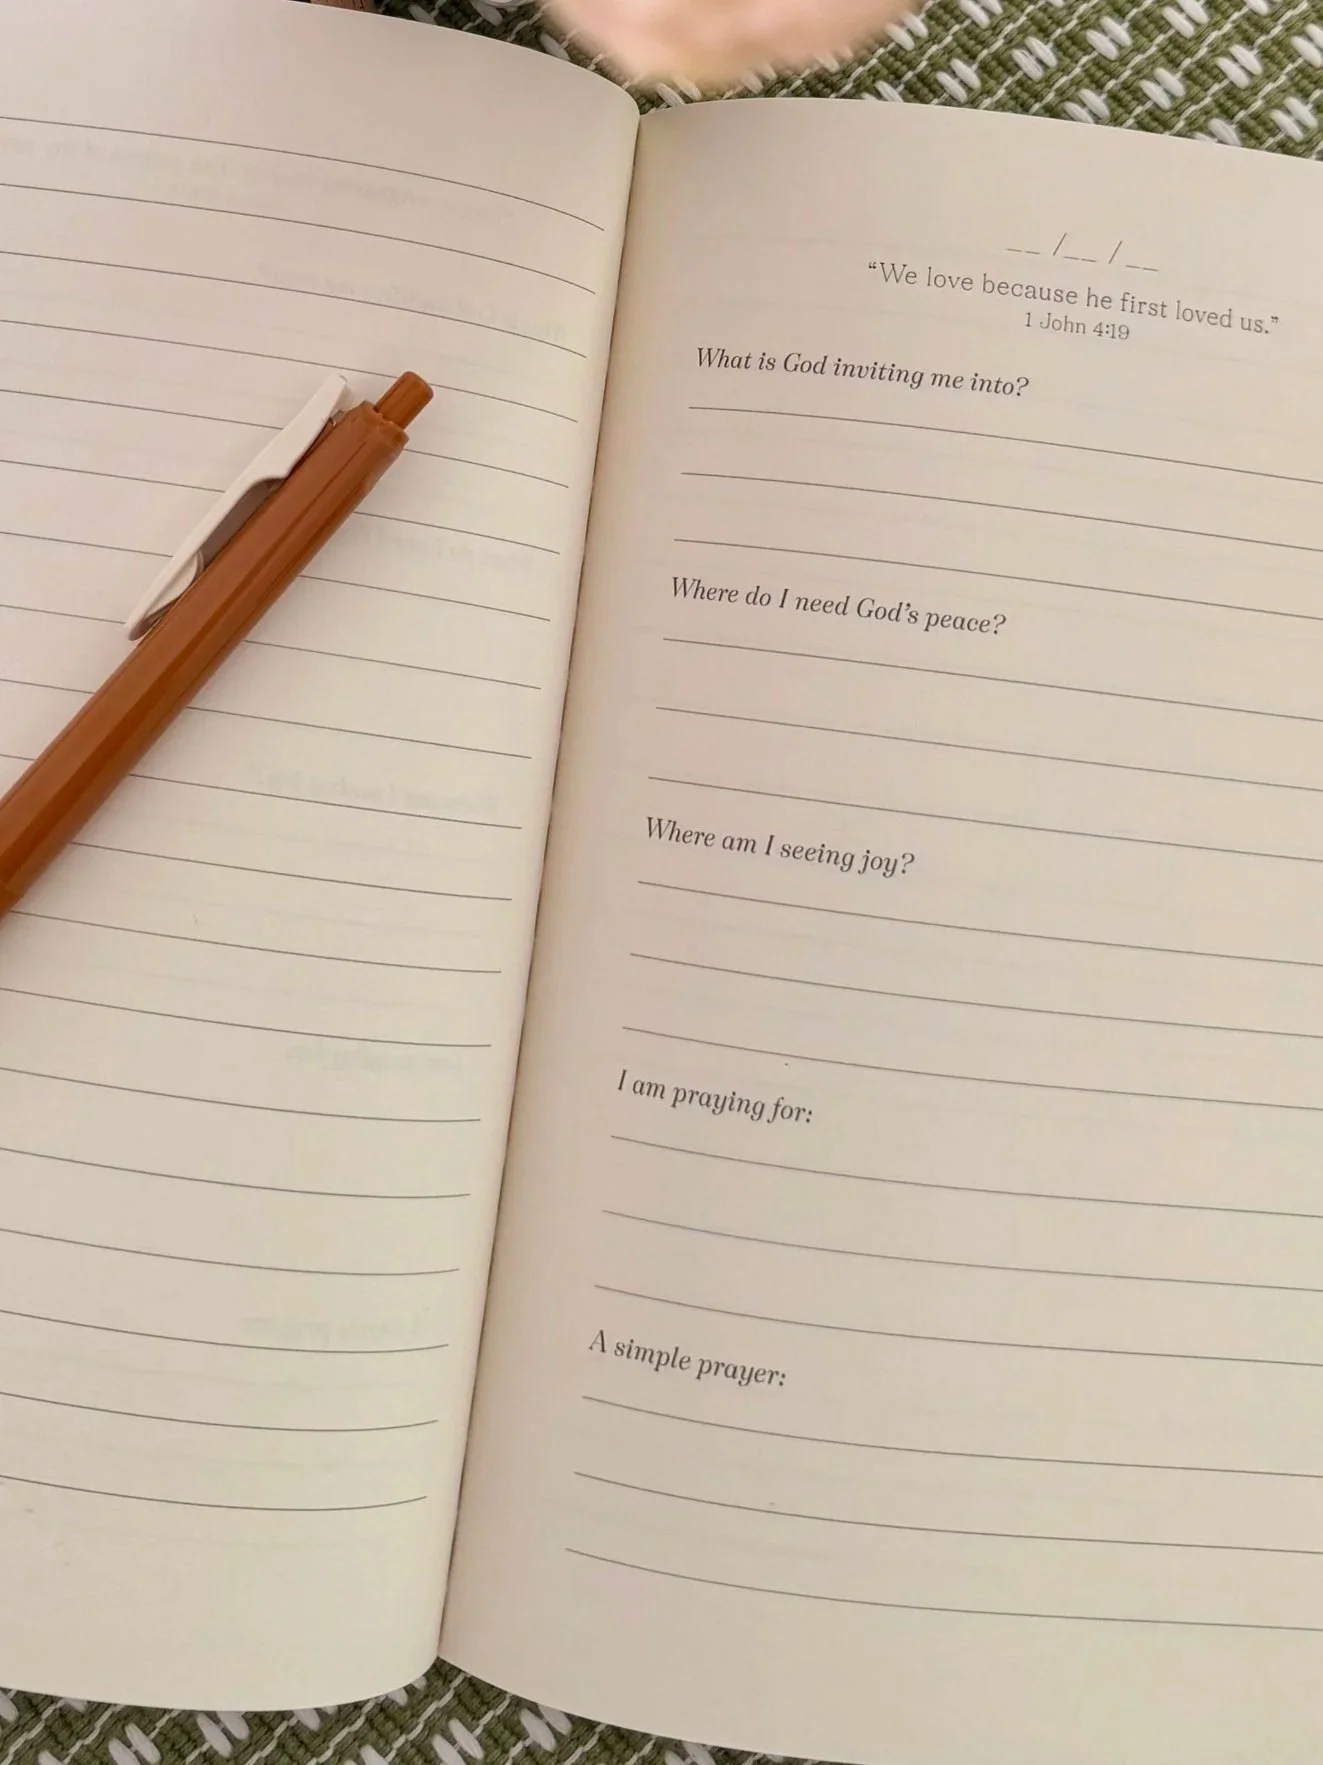 __ /__ /__
“We love because he first loved us.”
1 John 4:19
What is God inviting me into?
Where do I need God’s peace?
Where am I seeing joy?
I am praying for:
A simple prayer: